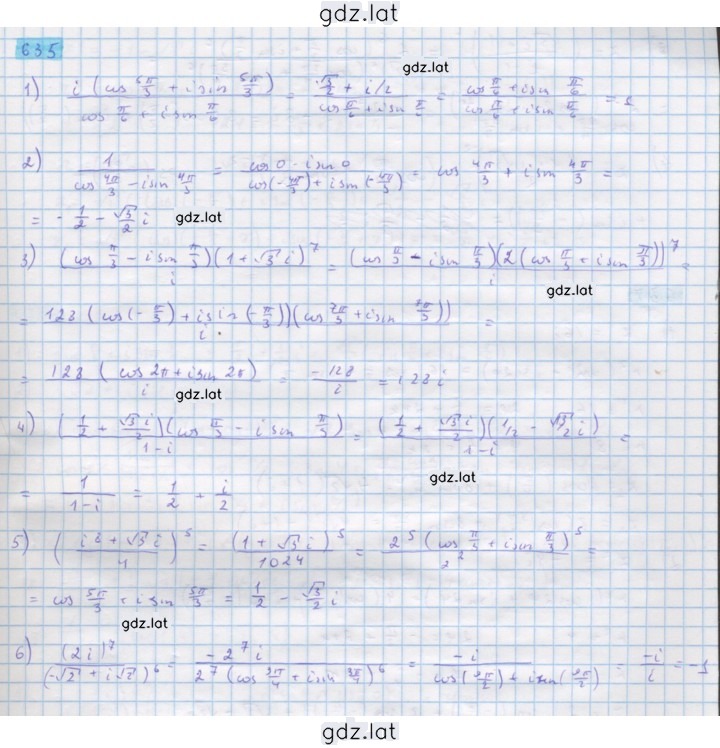 gdz.lat
635
gdz.lat
1) i (cos 5π/3 + i sin 5π/3) / (cos π/6 + i sin π/6) = (√3/2 + i/2) / (cos π/6 + i sin π/6) = (cos π/6 + i sin π/6) / (cos π/6 + i sin π/6) = 1
2) 1 / (cos 4π/3 - i sin 4π/3) = (cos 0 - i sin 0) / (cos(-4π/3) + i sin(-4π/3)) = cos 4π/3 + i sin 4π/3 =
= - 1/2 - √3/2 i
gdz.lat
3) (cos π/3 - i sin π/3)(1 + √3 i)^7 / i = (cos π/3 - i sin π/3)(2 (cos π/3 + i sin π/3))^7 / i =
gdz.lat
= 128 (cos(-π/3) + i sin(-π/3))(cos 7π/3 + i sin 7π/3)) / i =
= 128 (cos 2π + i sin 2π) / i = -128 / i = 128 i
gdz.lat
4) (1/2 + √3 i/2)(cos π/3 - i sin π/3) / (1-i) = (1/2 + √3 i/2)(1/2 - √3/2 i) / (1-i) =
gdz.lat
= 1 / (1-i) = 1/2 + i/2
5) ((i^8 + √3 i) / 4)^5 = (1 + √3 i)^5 / 1024 = 2^5 (cos π/3 + i sin π/3)^5 / 2^2 =
= cos 5π/3 + i sin 5π/3 = 1/2 - √3/2 i
gdz.lat
6) (2i)^7 / (-√2 + i√2)^6 = -2^7 i / 2^7 (cos 3π/4 + i sin 3π/4)^6 = -i / (cos(9π/2) + i sin(9π/2)) = -i / i = -1
gdz.lat